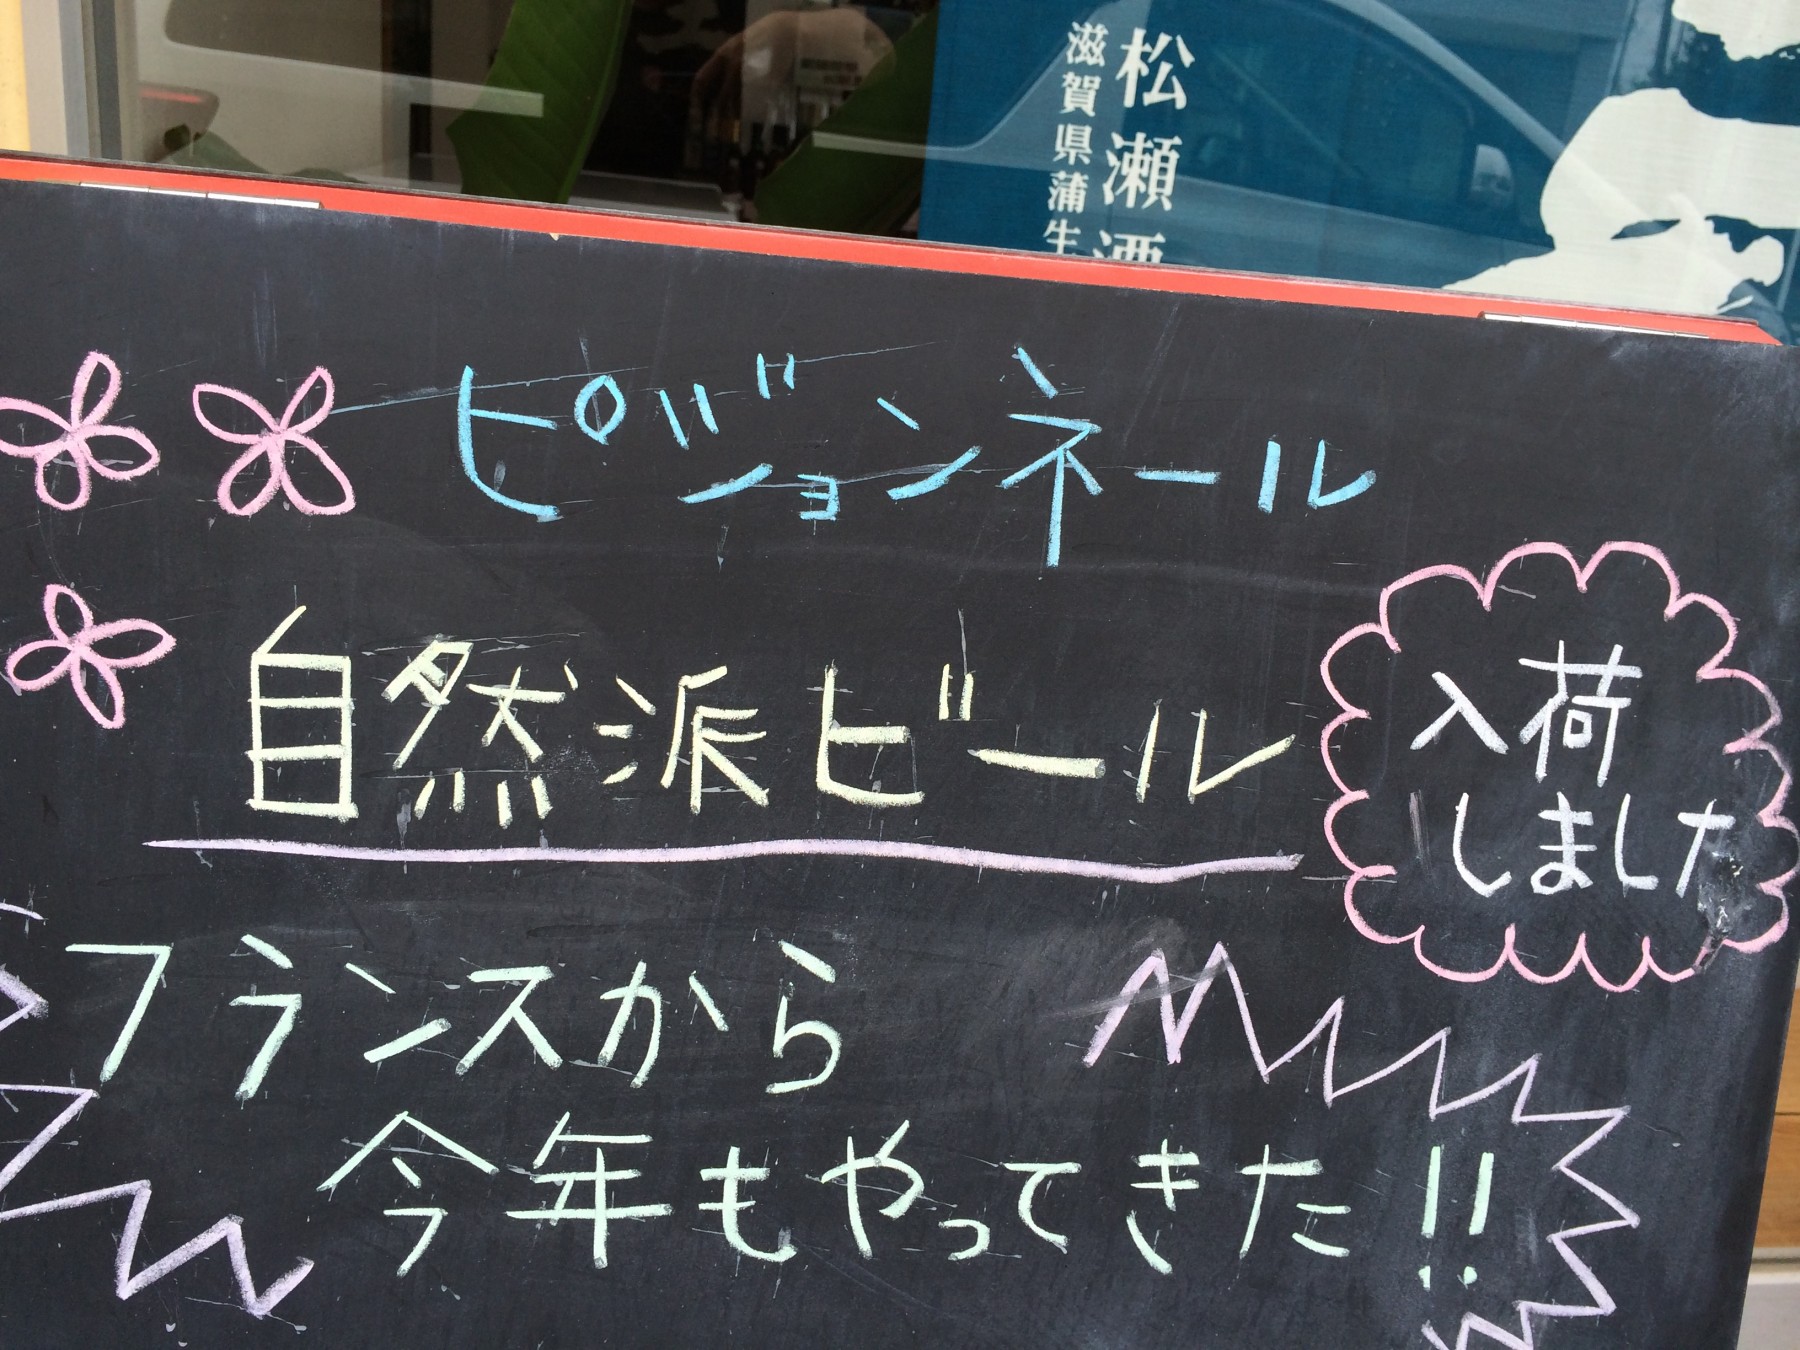 松瀬酒
滋賀県蒲生
ピジョンネール
自然派ビール
入荷
しました
フランスから
今年もやってきた!!